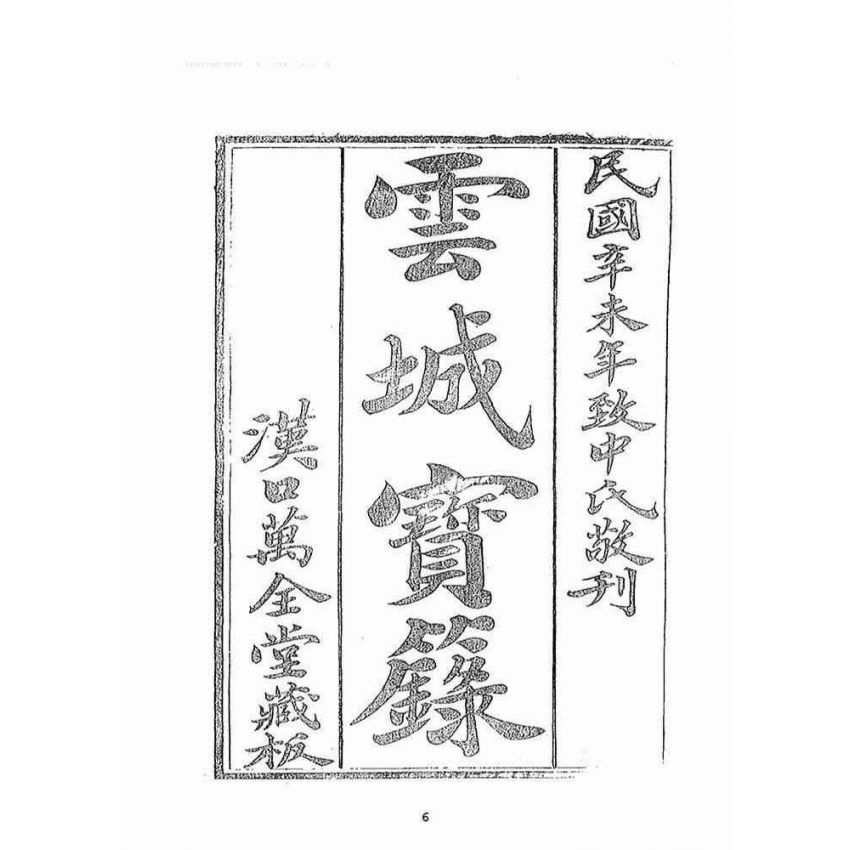 民國辛未年致中氏敬刊
雲城寶籙
漢口萬全堂藏板
6